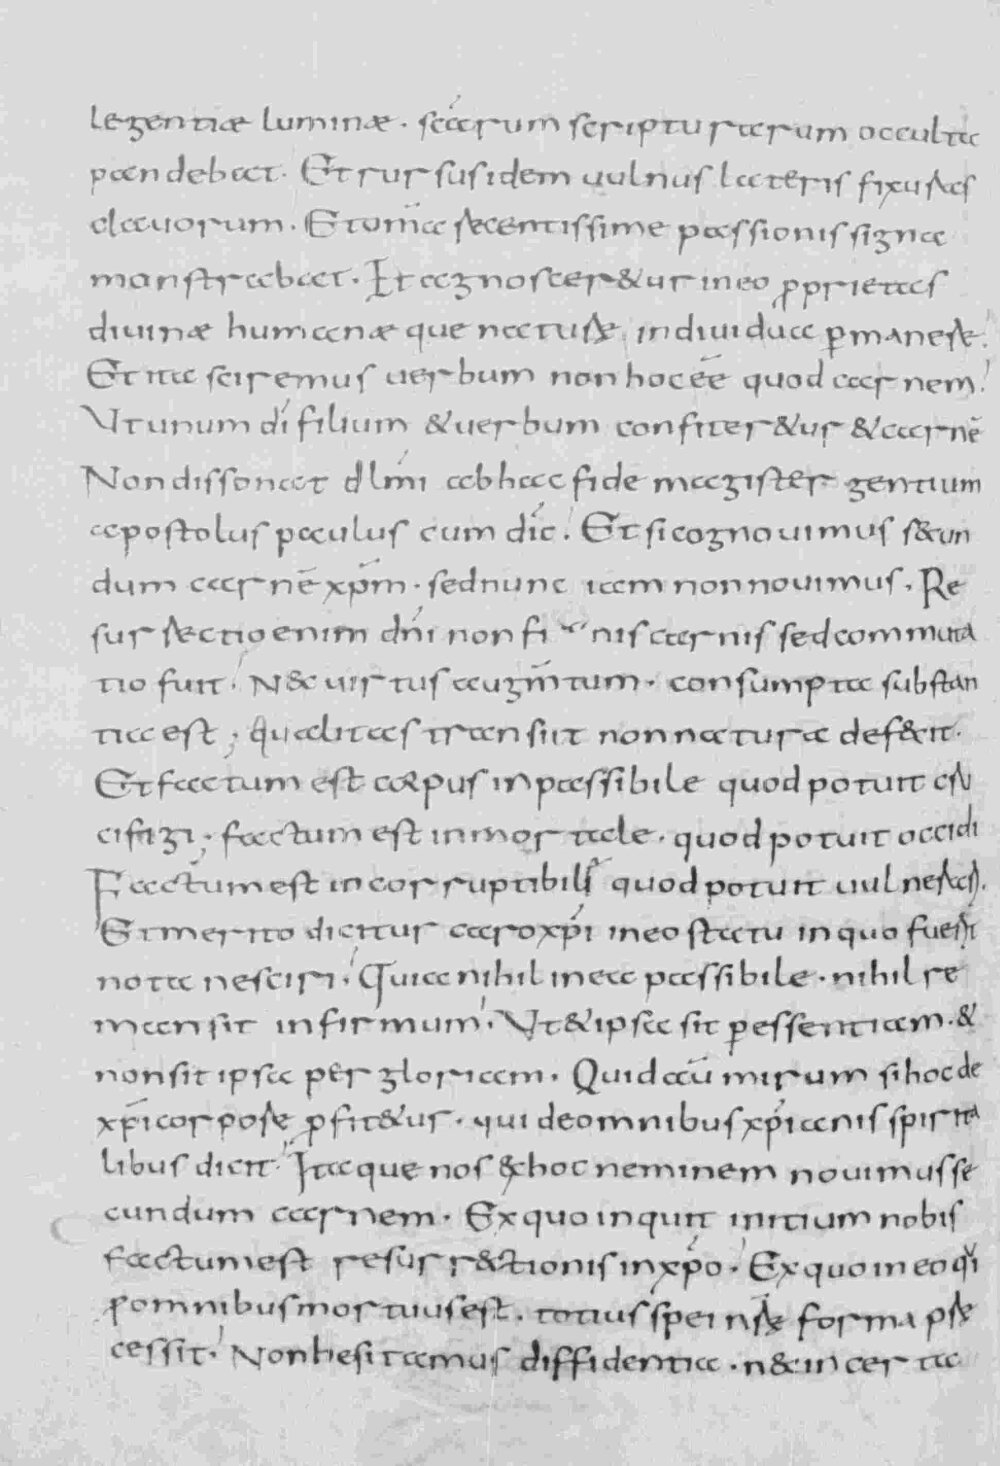 legentiæ luminæ . sc̄arum scripturarum occulta
pandebat . Et rursus idem uulnus lateris fixuras
clauorum . Et omīa recentissime passionis signa
monstrabat . Et agnosceret&ur in eo ꝓprietas
diuinæ humanæque naturæ indiuidua ꝑmanere .
Et ita sciremus uerbum non hoc ēē quod carnem .
Ut unum dī filium & uerbum confiter&ur & carnē
Non dissonat dlm̄i ab hac fide magister gentium
apostolus paulus cum dīc . Et si cognouimus s&un
dum carnē xp̄m . sed nunc iam non nouimus . Re
surrectio enim dn̄i non finis carnis sed commuta
tio fuit . N&c uirtus augm̄tum . consumpta substan
tia est . qualitas transiit non natura def&it .
Et factum est corpus inpassibile quod potuit cru
cifigi . factum est inmortale . quod potuit occidi
Factum est incorruptibile quod potuit uulnerari .
Et merito dicitur caro xp̄i in eo statu in quo fuerat
nota nesciri . Quia nihil in ea passibile . nihil re
mansit infirmum . Ut & ipsa sit ꝑ essentiam . &
non sit ipsa per gloriam . Quid aū mirum si hoc de
xp̄i corpore ꝓfit&ur . qui de omnibus xp̄ianis spirita
libus dicit . Itaque nos ex hoc neminem nouimus se
cundum carnem . Ex quo inquit initium nobis
factum est resurr&tionis in xp̄o . Ex quo in eo qui
ꝓ omnibus mortuus est . totius spei nr̄æ forma præ
cessit . Non hesitamus diffidentia . n&c incerta